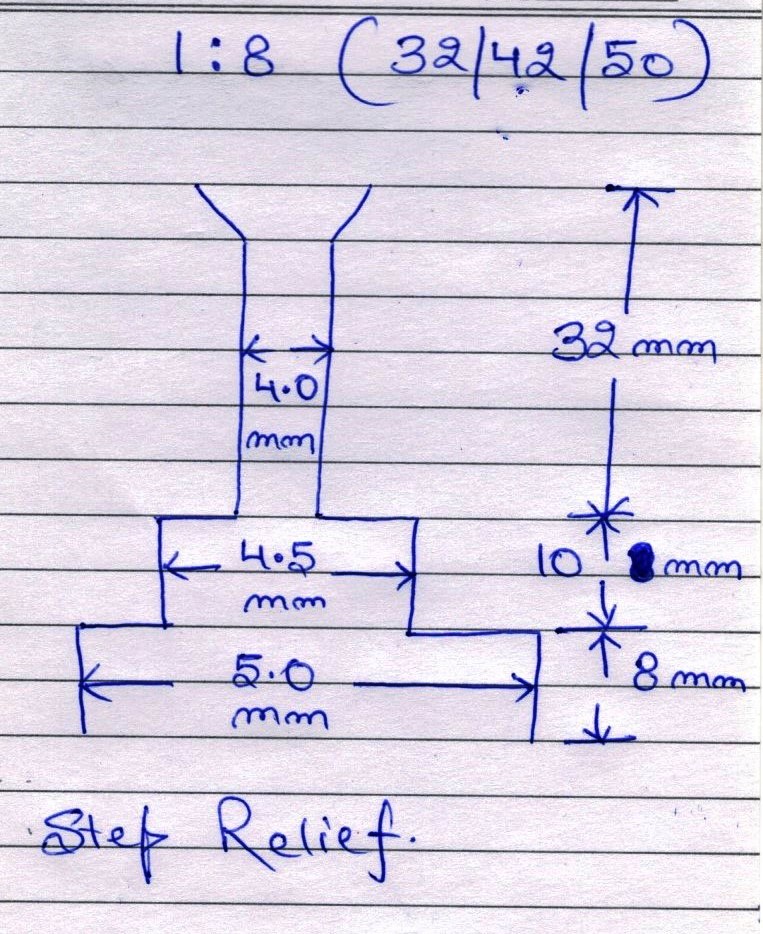 1:8 (32/42/50)
32 mm
4.0
mm
4.5
mm
10 mm
5.0
mm
8 mm
Step Relief.